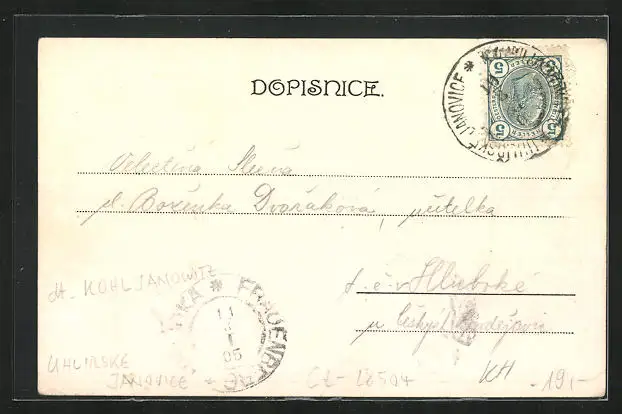 DOPISNICE.
JANOVICE *
5 5
Velectěná Slečna
sl. Boženka Dvořáková, učitelka
t. č. v Hluboké
u Českých
dt. KOHLJANOWITZ
* FRAUENBERG
11
05
UHLIRSKE
JANOVICE
CZ-28504
KH
19,-